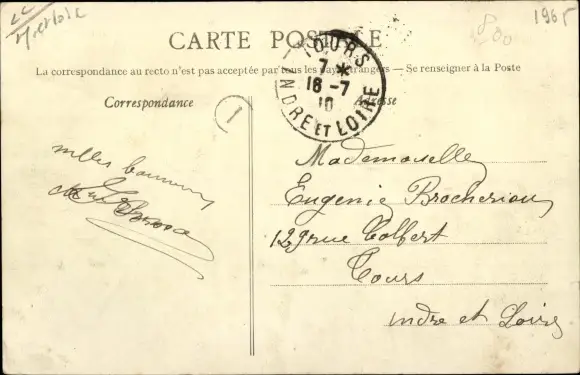 CARTE POSTALE
La correspondance au recto n'est pas acceptée par tous les pays étrangers — Se renseigner à la Poste
Correspondance
Adresse
TOURS
7 *
16 -7
10
INDRE ET LOIRE
1
1965
800
Mademoiselle
Eugenie Brocheriou
129 rue Colbert
Tours
indre et Loire